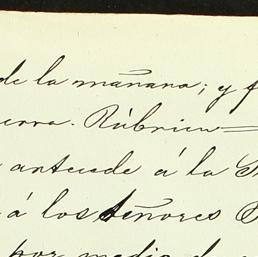 de la mañana; y
erra. Rúbrica
antecede á la
á los señores
por medio de